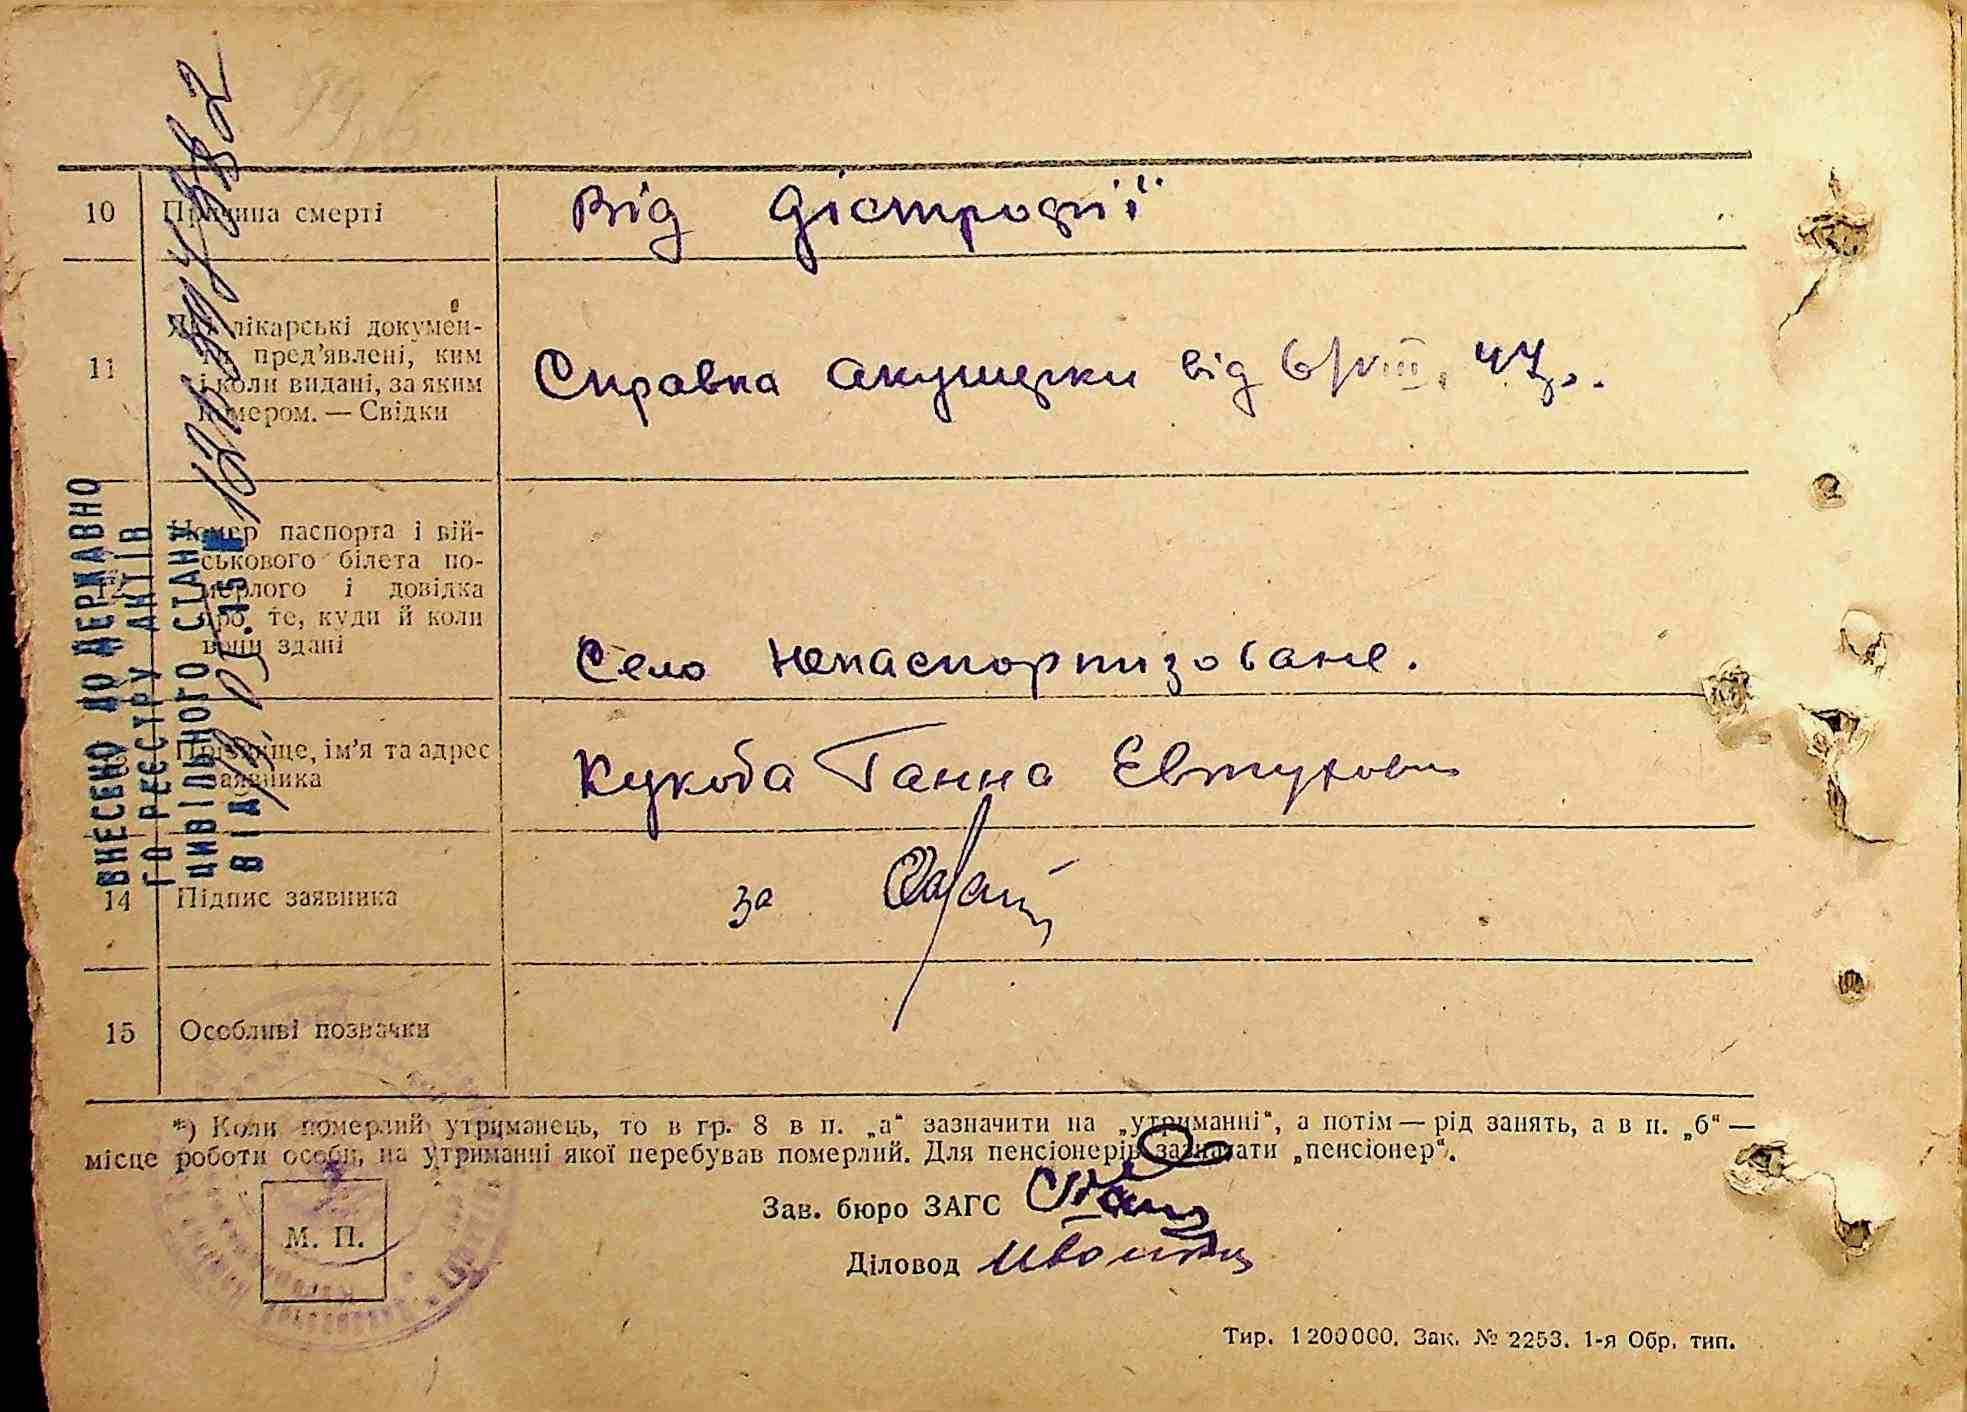 10 Причина смерті Від дістрофії
11 Які лікарські докумен-
ти пред’явлені, ким
і коли видані, за яким
номером. — Свідки
Справка акушерки від 6/VIII. 47р.
12 Номер паспорта і вій-
ськового білета по-
мерлого і довідка
про те, куди й коли
вони здані
Село непаспортизоване.
13 Прізвище, ім’я та адрес
заявника
Кукоба Ганна Евтуховн
14 Підпис заявника за
15 Особливі позначки
*) Коли померлий утриманець, то в гр. 8 в п. „а“ зазначити на „утриманні“, а потім — рід занять, а в п. „б“ —
місце роботи особи, на утриманні якої перебував померлий. Для пенсіонерів зазначати „пенсіонер“.
Зав. бюро ЗАГС
Діловод
М. П.
Тир. 1200000. Зак. № 2253. 1-я Обр. тип.
ВНЕСЕНО ДО ДЕРЖАВНО
ГО РЕЄСТРУ АКТІВ
ЦИВІЛЬНОГО СТАНУ
ВІД